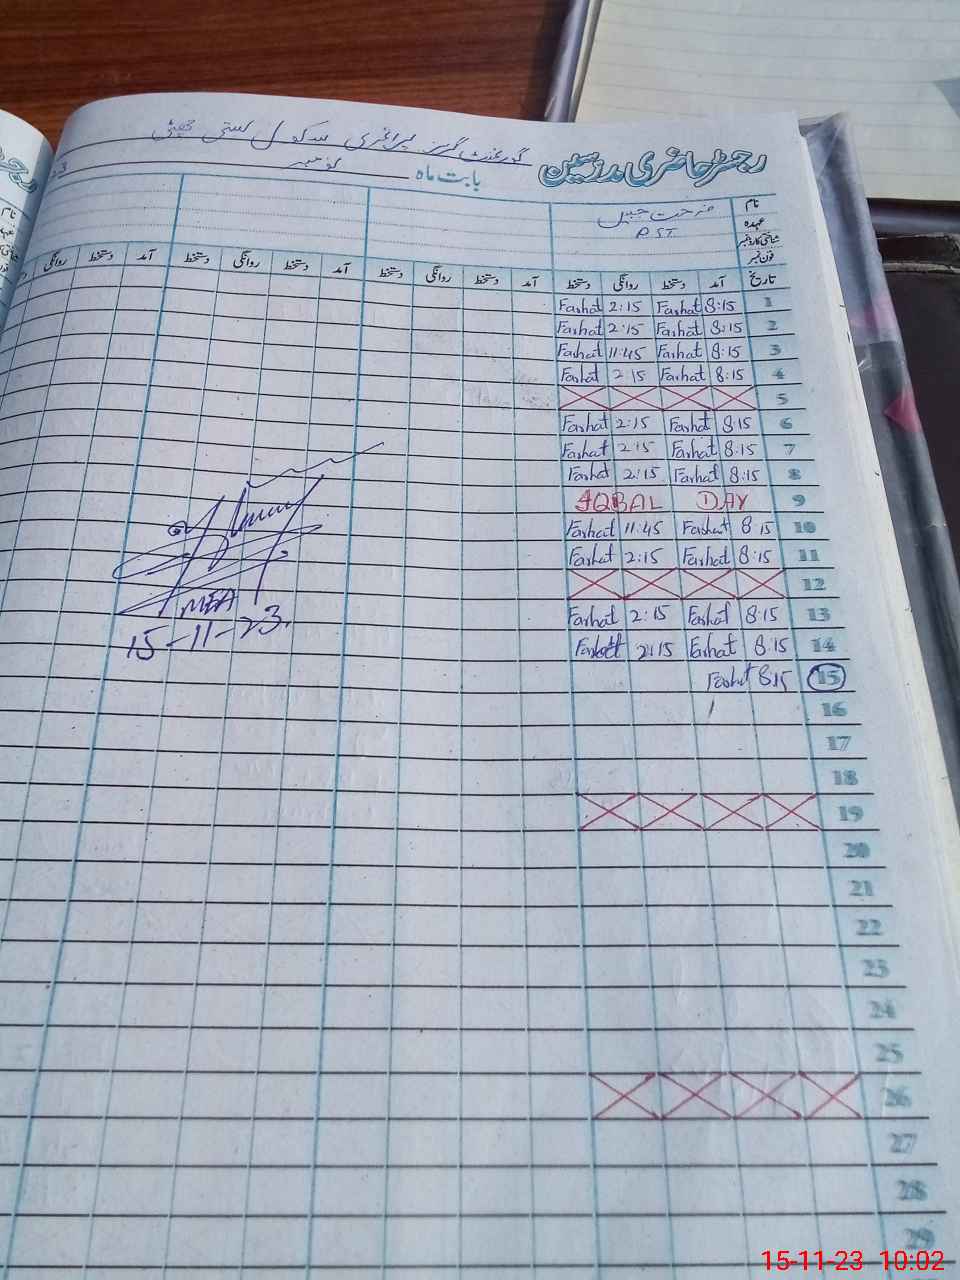 رجسٹر حاضری مدرسین گورنمنٹ گرلز پرائمری سکول بستی
بابت ماہ نومبر
نام فرحت جبیں
عہدہ P.S.T
شناختی کارڈ نمبر
فون نمبر
تاریخ آمد دستخط روانگی دستخط آمد دستخط روانگی دستخط آمد دستخط روانگی دستخط آمد دستخط روانگی
1 8:15 Farhat 2:15 Farhat
2 8:15 Farhat 2:15 Farhat
3 8:15 Farhat 11:45 Farhat
4 8:15 Farhat 2:15 Farhat
5
6 8:15 Farhat 2:15 Farhat
7 8:15 Farhat 2:15 Farhat
8 8:15 Farhat 2:15 Farhat
9 IQBAL DAY
10 8:15 Farhat 11:45 Farhat
11 8:15 Farhat 2:15 Farhat
12
13 8:15 Farhat 2:15 Farhat
14 8:15 Farhat 2:15 Farhat
15 8:15 Farhat
16
17
18
19
20
21
22
23
24
25
26
27
28
29
MEA
15-11-23.
15-11-23 10:02